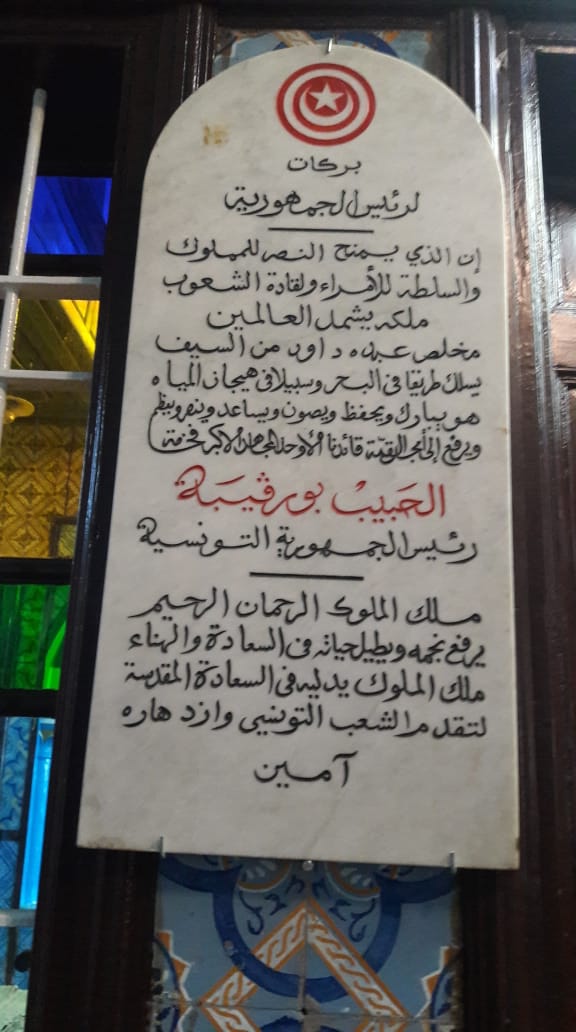 بركات
لرئيس الجمهورية
إن الذي يمنح النصر للملوك
والسلطة للأمراء ولقادة الشعوب
ملكه يشمل العالمين
مخلص عبده داود من السيف
يسلك طريقا في البحر وسبيلا في هيجان المياه
هو يبارك ويحفظ ويصون ويساعد وينصر ويعظم
ويرفع إلى القمة قائدنا الأوحد المجاهد الأكبر فخامة
الحَبيبْ بورڤيبَة
رئيس الجمهورية التونسية
ملك الملوك الرحمان الرحيم
يرفع نجمه ويطيل حياته في السعادة والهناء
ملك الملوك يديمه في السعادة المقدسة
لتقدم الشعب التونسي وازدهاره
آمين